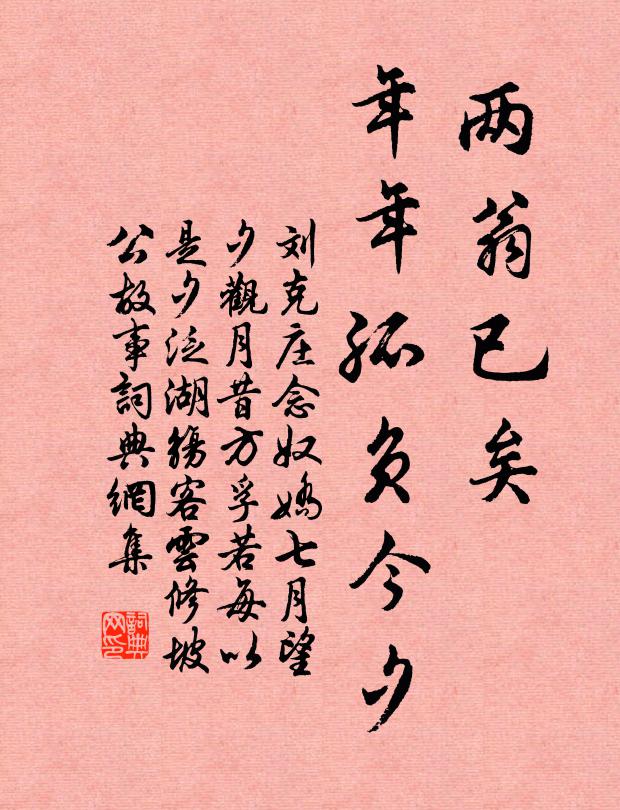 两翁已矣
年年孤负今夕
刘克庄念奴娇七月望
夕觀月昔方孚若每以
是夕泛湖觞客雲修坡
公故事詞典網集
詞典网印